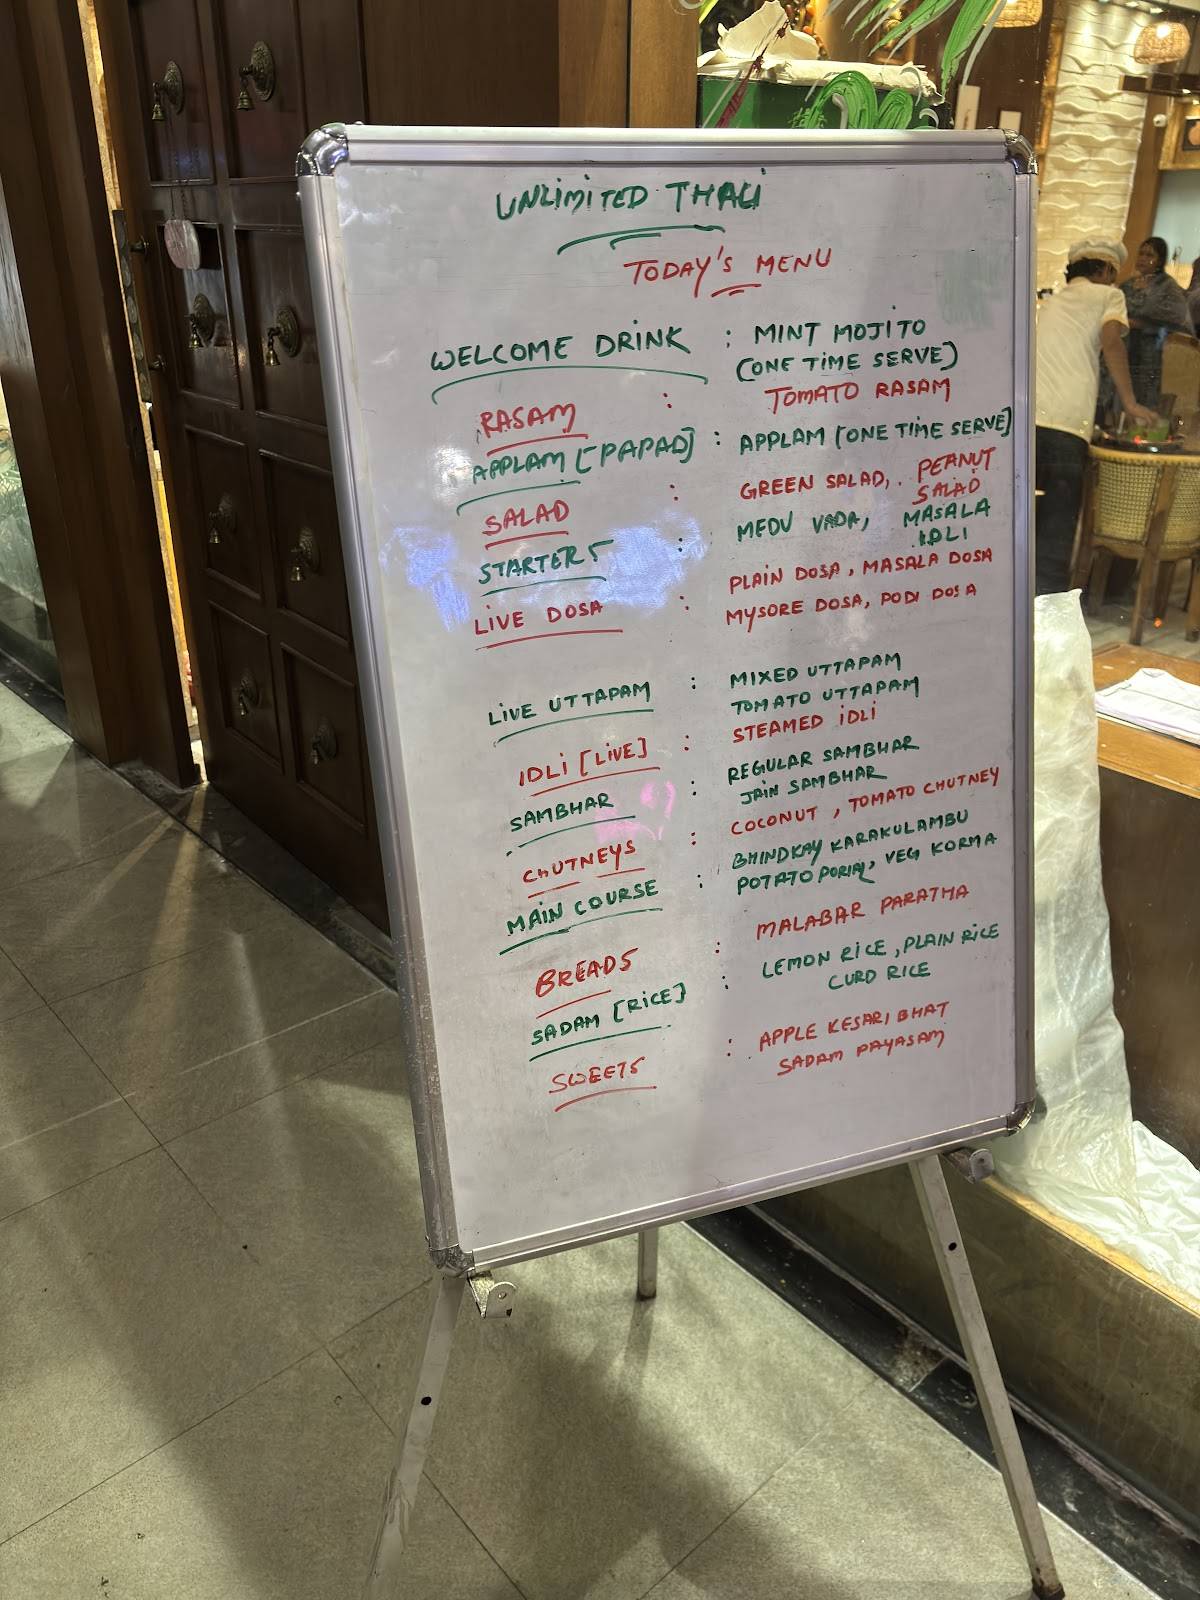 UNLIMITED THALI
TODAY'S MENU
WELCOME DRINK : MINT MOJITO
(ONE TIME SERVE)
RASAM : TOMATO RASAM
APPLAM [PAPAD] : APPLAM [ONE TIME SERVE]
SALAD : GREEN SALAD, PEANUT
SALAD
STARTERS : MEDU VADA, MASALA
IDLI
LIVE DOSA : PLAIN DOSA, MASALA DOSA
MYSORE DOSA, PODI DOSA
LIVE UTTAPAM : MIXED UTTAPAM
TOMATO UTTAPAM
IDLI [LIVE] : STEAMED IDLI
SAMBHAR : REGULAR SAMBHAR
JAIN SAMBHAR
CHUTNEYS : COCONUT, TOMATO CHUTNEY
MAIN COURSE : BHINDKAY KARAKULAMBU
POTATO PORIAL, VEG KORMA
BREADS : MALABAR PARATHA
SADAM [RICE] : LEMON RICE, PLAIN RICE
CURD RICE
SWEETS : APPLE KESARI BHAT
SADAM PAYASAM